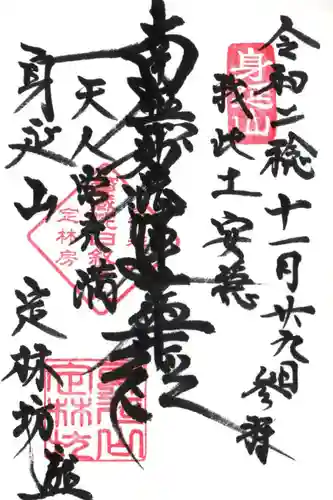 令和二稔十一月廿九日参拝
我此土安穏
南無妙法蓮華経
天人常充満
身延山 定林坊
身延山
定林房